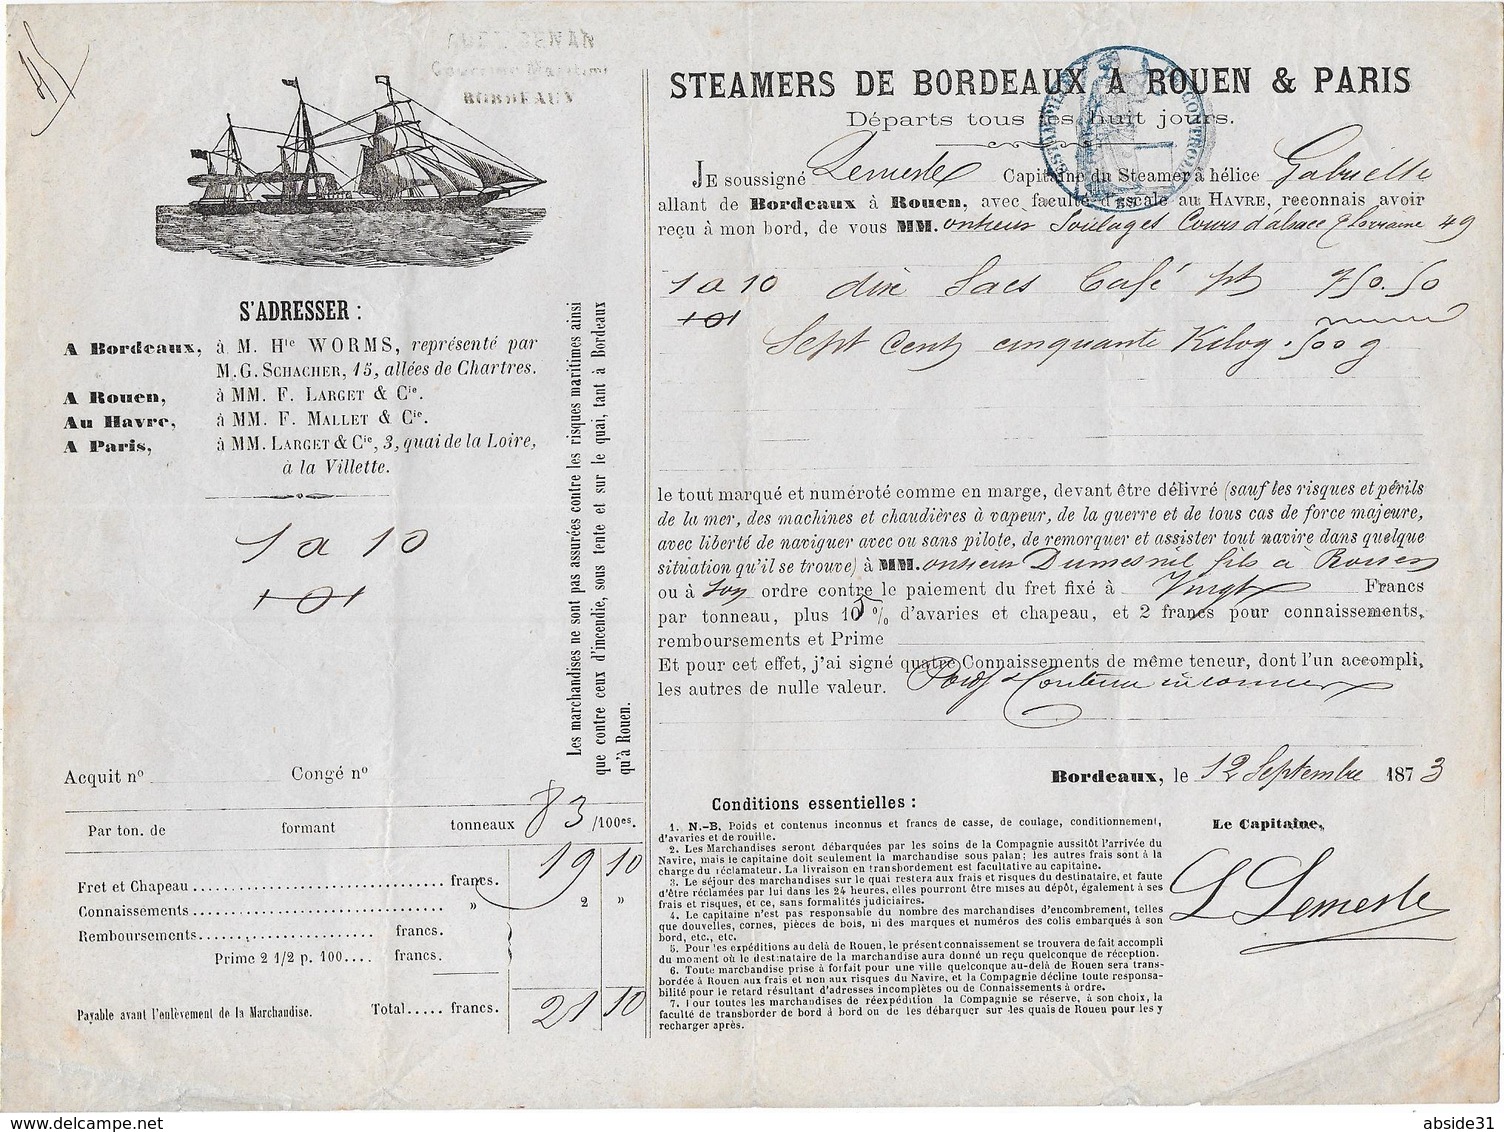 ABEL DENAN
Courrier Maritime
BORDEAUX
S'ADRESSER :
A Bordeaux, à M. Hie WORMS, représenté par
M.G. SCHACHER, 15, allées de Chartres.
A Rouen, à MM. F. LARGET & Cie.
Au Havre, à MM. F. MALLET & Cie.
A Paris, à MM. LARGET & Cie, 3, quai de la Loire,
à la Villette.
1 a 10
Les marchandises ne sont pas assurées contre les risques maritimes ainsi
que contre ceux d'incendie, sous tente et sur le quai, tant à Bordeaux
qu'à Rouen.
Acquit no Congé no
Par ton. de formant tonneaux 83 /100es.
Fret et Chapeau francs. 19 10
Connaissements » 2 »
Remboursements francs.
Prime 2 1/2 p. 100.... francs.
Payable avant l'enlèvement de la Marchandise. Total..... francs. 21 10
STEAMERS DE BORDEAUX A ROUEN & PARIS
Départs tous les huit jours.
JE soussigné Lemesle Capitaine du Steamer à hélice Gabrielle
allant de Bordeaux à Rouen, avec faculté d'escale au HAVRE, reconnais avoir
reçu à mon bord, de vous MM.onsieur Soulages Cours d'alsace & Lorraine 49
1 a 10 dix Sacs Café pt 750.50
Sept Cent cinquante Kilog. 500 g
le tout marqué et numéroté comme en marge, devant être délivré (sauf les risques et périls
de la mer, des machines et chaudières à vapeur, de la guerre et de tous cas de force majeure,
avec liberté de naviguer avec ou sans pilote, de remorquer et assister tout navire dans quelque
situation qu'il se trouve) à MM.onsieur Dumesnil fils à Rouen
ou à son ordre contre le paiement du fret fixé à Vingt Francs
par tonneau, plus 10 % d'avaries et chapeau, et 2 francs pour connaissements,
remboursements et Prime
Et pour cet effet, j'ai signé quatre Connaissements de même teneur, dont l'un accompli,
les autres de nulle valeur. Poids & Contenu inconnus
Bordeaux, le 12 Septembre 1873
Conditions essentielles :
1. N.-B. Poids et contenus inconnus et francs de casse, de coulage, conditionnement,
d'avaries et de rouille.
2. Les Marchandises seront débarquées par les soins de la Compagnie aussitôt l'arrivée du
Navire, mais le capitaine doit seulement la marchandise sous palan; les autres frais sont à la
charge du réclamateur. La livraison en transbordement est facultative au capitaine.
3. Le séjour des marchandises sur le quai restera aux frais et risques du destinataire, et faute
d'être réclamées par lui dans les 24 heures, elles pourront être mises au dépôt, également à ses
frais et risques, et ce, sans formalités judiciaires.
4. Le capitaine n'est pas responsable du nombre des marchandises d'encombrement, telles
que douvelles, cornes, pièces de bois, ni des marques et numéros des colis embarqués à son
bord, etc., etc.
5. Pour les expéditions au delà de Rouen, le présent connaissement se trouvera de fait accompli
du moment où le destinataire de la marchandise aura donné un reçu quelconque de réception.
6. Toute marchandise prise à forfait pour une ville quelconque au-delà de Rouen sera trans-
bordée à Rouen aux frais et non aux risques du Navire, et la Compagnie décline toute responsa-
bilité pour le retard résultant d'adresses incomplètes ou de Connaissements à ordre.
7. Pour toutes les marchandises de réexpédition la Compagnie se réserve, à son choix, la
faculté de transborder de bord à bord ou de les débarquer sur les quais de Rouen pour les y
recharger après.
Le Capitaine,
L Lemesle
abside31